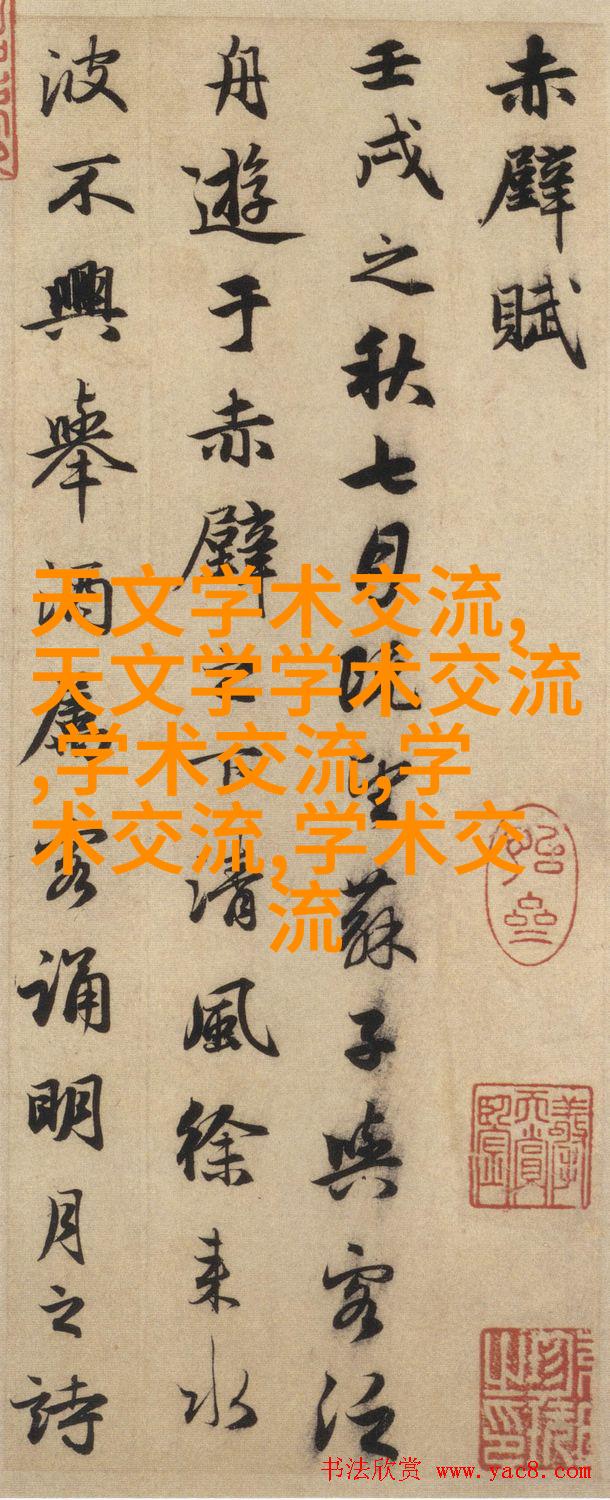 赤壁賦
壬戌之秋七月既望蘇子與客泛
舟遊于赤壁之下清風徐来水
波不興舉酒屬客誦明月之詩
天文学术交流,
天文学学术交流
,学术交流,学
术交流,学术交
流
书法欣赏 www.yac8.com